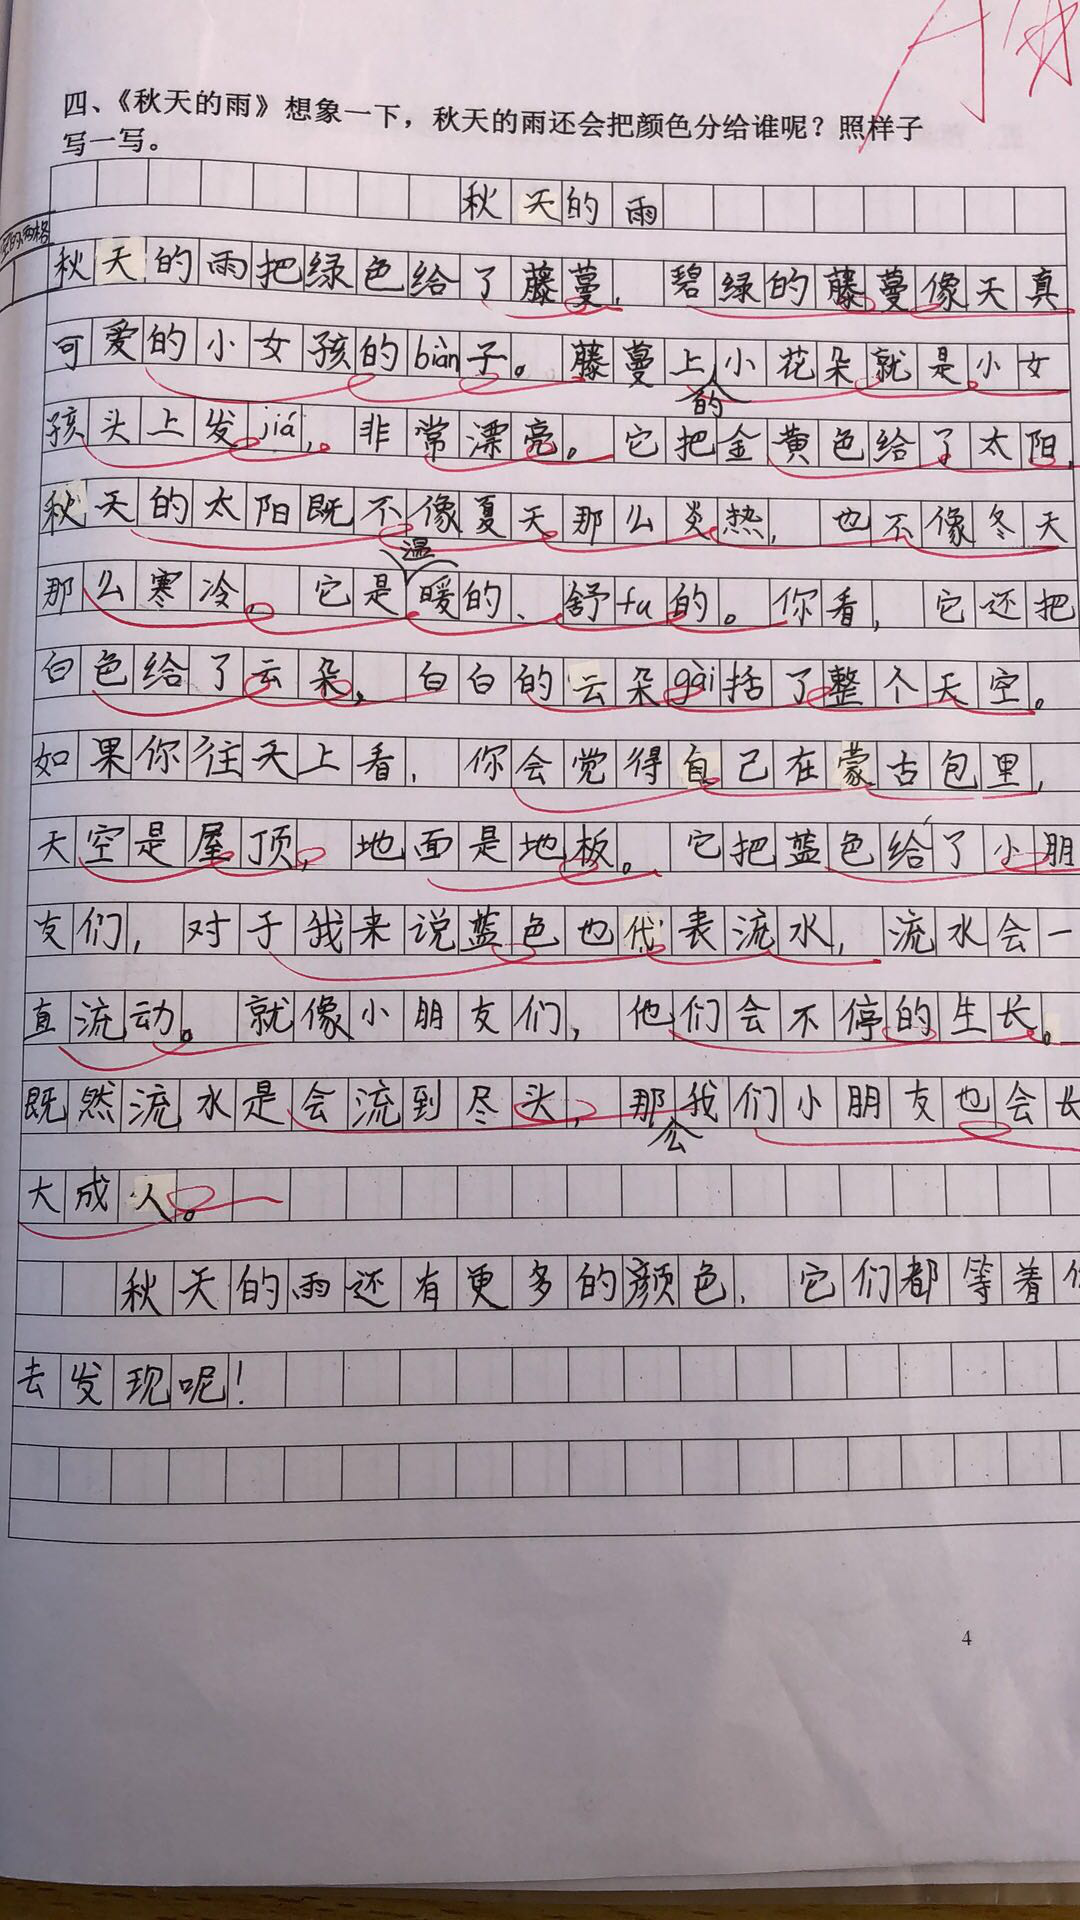 四、《秋天的雨》想象一下，秋天的雨还会把颜色分给谁呢？照样子
写一写。
秋天的雨
秋天的雨把绿色给了藤蔓，碧绿的藤蔓像天真
可爱的小女孩的biàn子。藤蔓上的小花朵就是小女
孩头上发jiá，非常漂亮。它把金黄色给了太阳，
秋天的太阳既不像夏天那么炎热，也不像冬天
那么寒冷，它是温暖的、舒fu的。你看，它还把
白色给了云朵，白白的云朵gài括了整个天空。
如果你往天上看，你会觉得自己在蒙古包里，
天空是屋顶，地面是地板。它把蓝色给了小朋
友们，对于我来说蓝色也代表流水，流水会一
直流动。就像小朋友们，他们会不停的生长。
既然流水是会流到尽头，那么我们小朋友也会长
大成人。
秋天的雨还有更多的颜色，它们都等着
去发现呢！
4